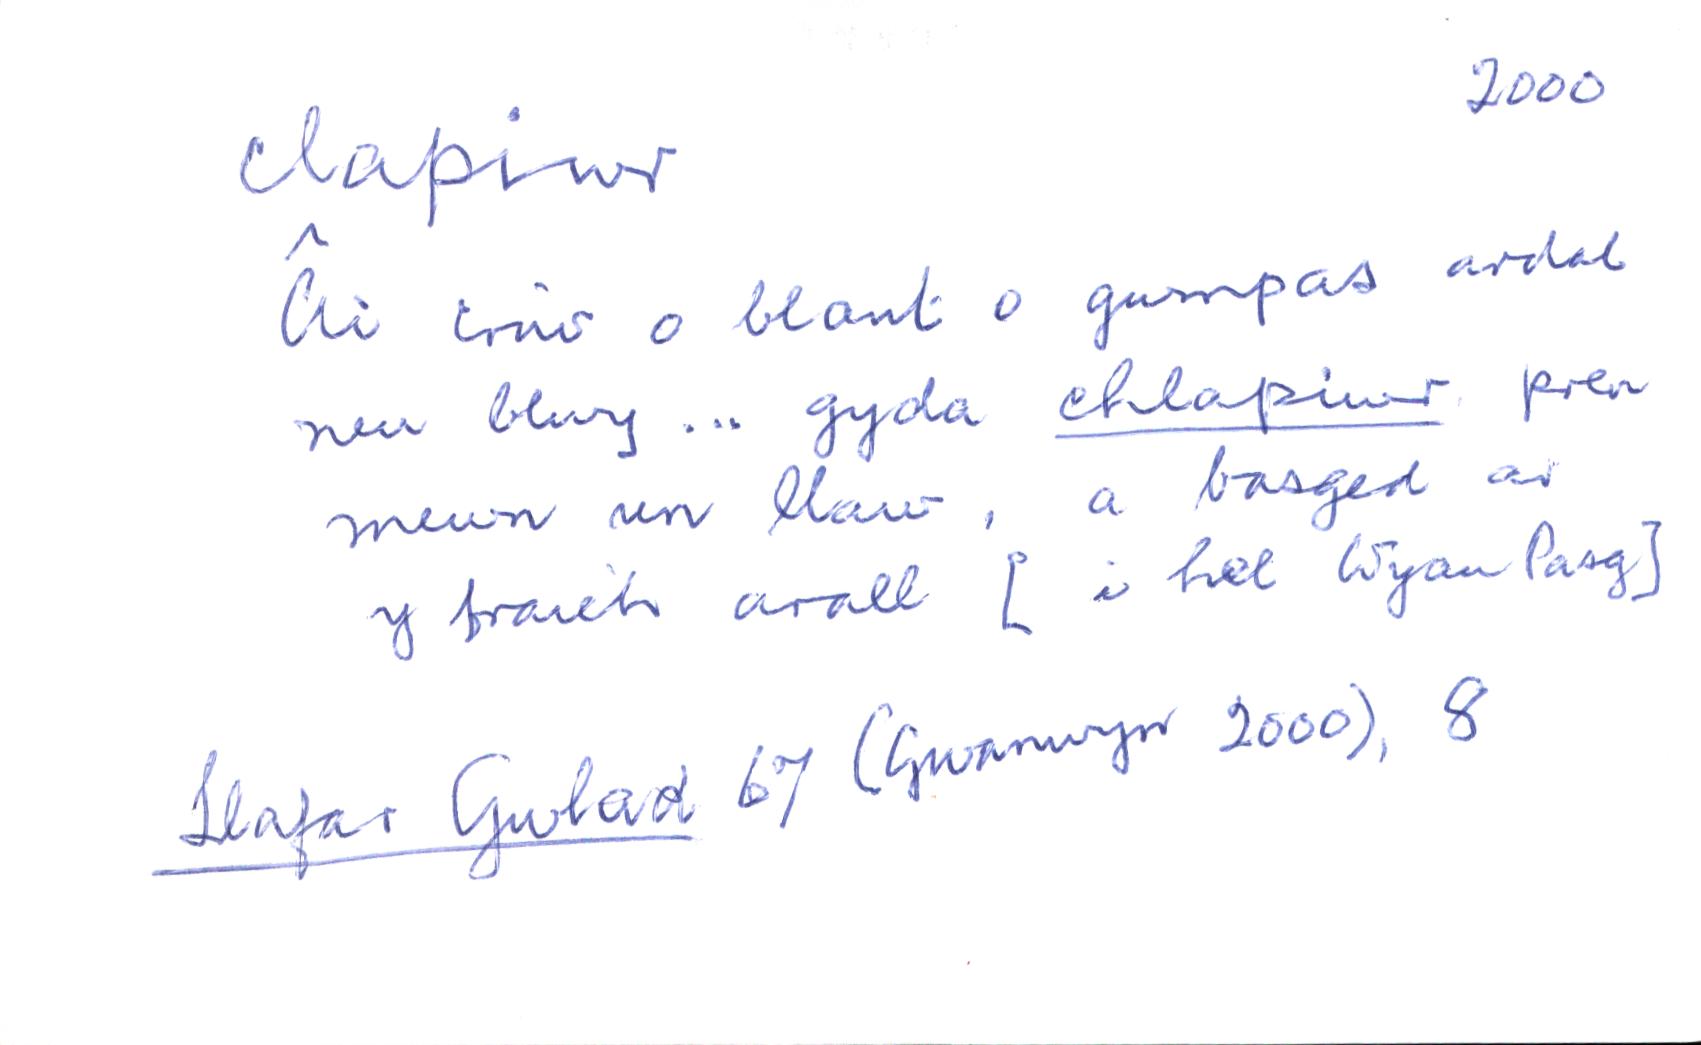 2000
clapiwr
Âi criw o blant o gwmpas ardal
neu blwy ... gyda chlapiwr pren
mewn un llaw, a basged ar
y fraich arall [i hel wyau Pasg]
Llafar Gwlad 67 (Gwanwyn 2000), 8